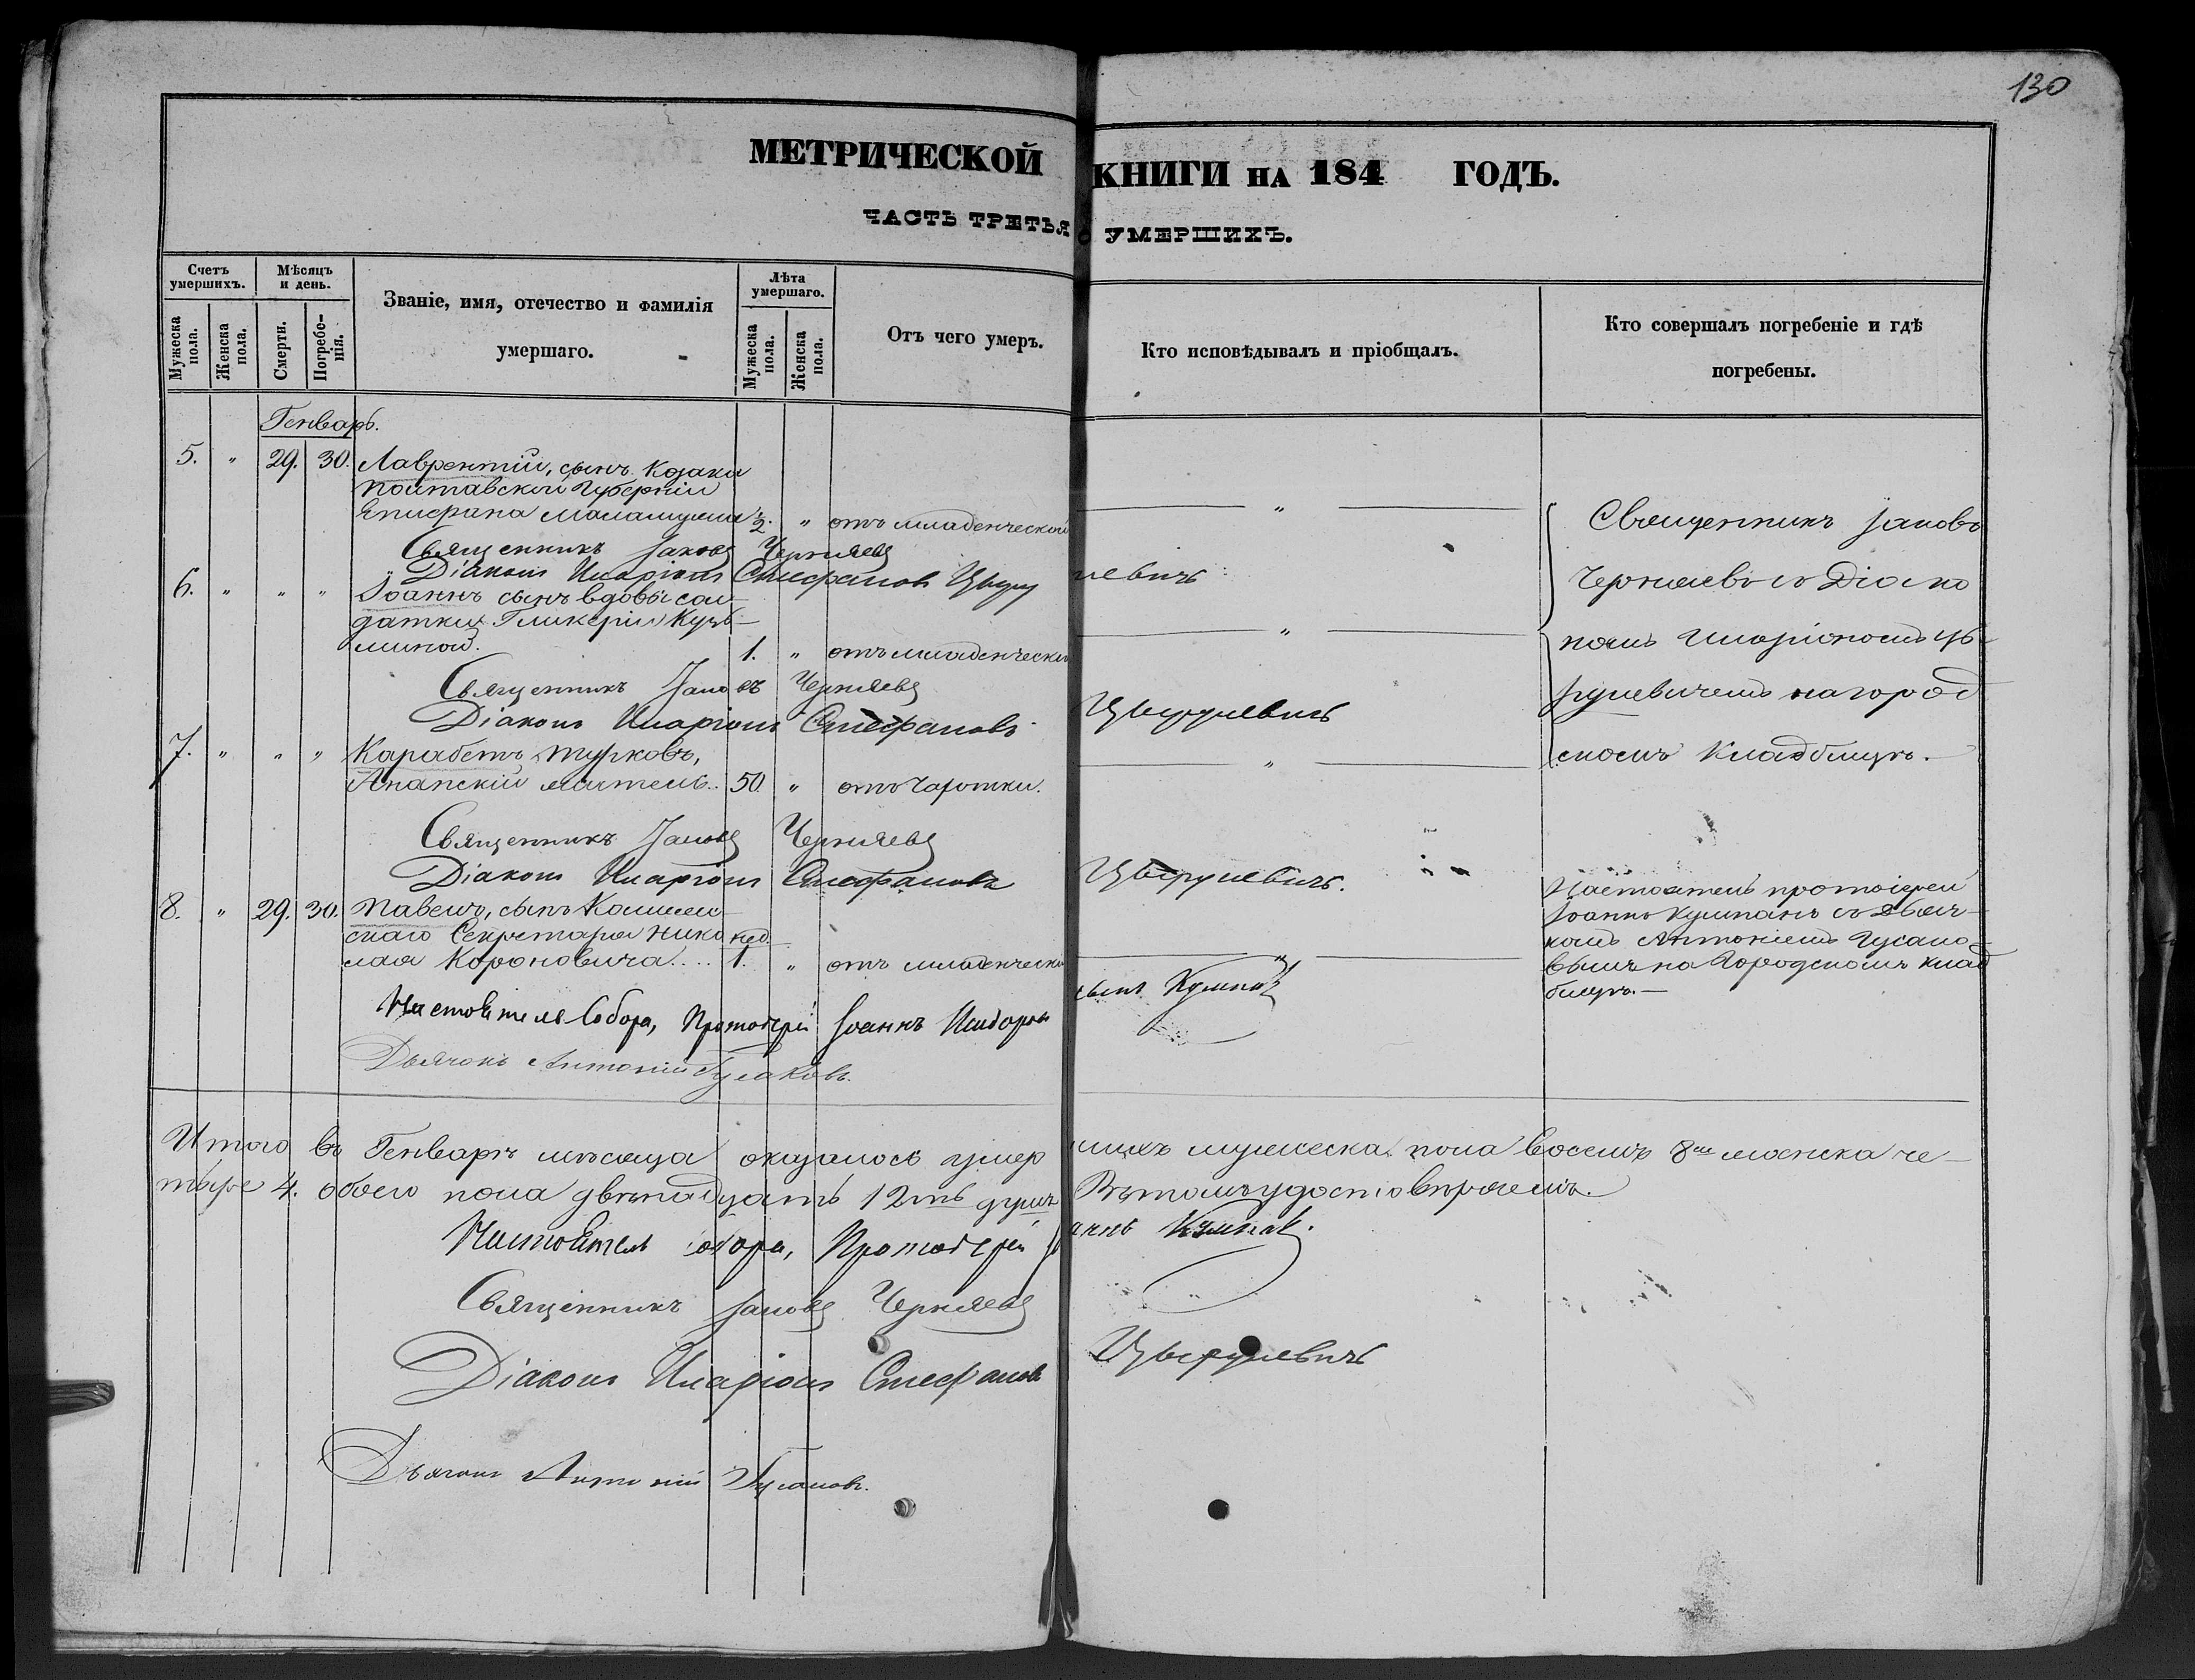 130
МЕТРИЧЕСКОЙ КНИГИ НА 184 ГОДЪ.
ЧАСТЬ ТРЕТЬЯ О УМЕРШИХЪ.
Счетъ умершихъ.
Мужеска пола.
Женска пола.
Мѣсяцъ и день.
Смерти.
Погребе-нія.
Званіе, имя, отечество и фамилія
умершаго.
Лѣта умершаго.
Мужеска пола.
Женска пола.
Отъ чего умеръ.
Кто исповѣдывалъ и пріобщалъ.
Кто совершалъ погребеніе и гдѣ
погребены.
Генварь.
5. " 29. 30. Лаврентій, сынъ Козака
Полтавской Губерніи
Епифана 1/2. " отъ младенческой "
Священникъ Іаковъ Черняевъ
Діаконъ Иларіонъ Стефановъ
6. " " " Іоаннъ сынъ вдовы сол-
датки Гликеріи Кузь-
миной. 1. " отъ младенческой "
Священникъ Іаковъ Черняевъ
Діаконъ Иларіонъ Стефановъ
7. " " " Карабетъ Турковъ,
Анапскій житель. 50. " отъ чахотки. "
Священникъ Іаковъ Черняевъ
Діаконъ Иларіонъ Стефановъ
Священникъ Іаковъ
Черняевъ съ Діако
номъ Иларіономъ
на город
скомъ Кладбищѣ.
8. " 29. 30. Павелъ, сынъ Коллеж-
скаго Секретаря Нико нед.
лая Короновича.... 1. " отъ младенческой "
Настоятель протоіерей
Іоаннъ Кумпанъ съ Дьяч-
комъ Антоніемъ Гусако-
вымъ на Городскомъ клад
бищѣ.
Настоятель Собора, Протоіерей Іоаннъ Исидоровъ сынъ Кумпанъ
Дьячокъ Антоній Гусаковъ.
Итого въ Генварѣ мѣсяцѣ оказалось умершихъ мужеска пола восемь 8мь женска че-
тыре 4. обоего пола двѣнадцать 12ть душъ Въ томъ удостовѣряемъ.
Настоятель собора, Протоіерей Іоаннъ Кумпанъ.
Священникъ Іаковъ Черняевъ
Діаконъ Иларіонъ Стефановъ
Дьячокъ Антоній Гусаковъ.